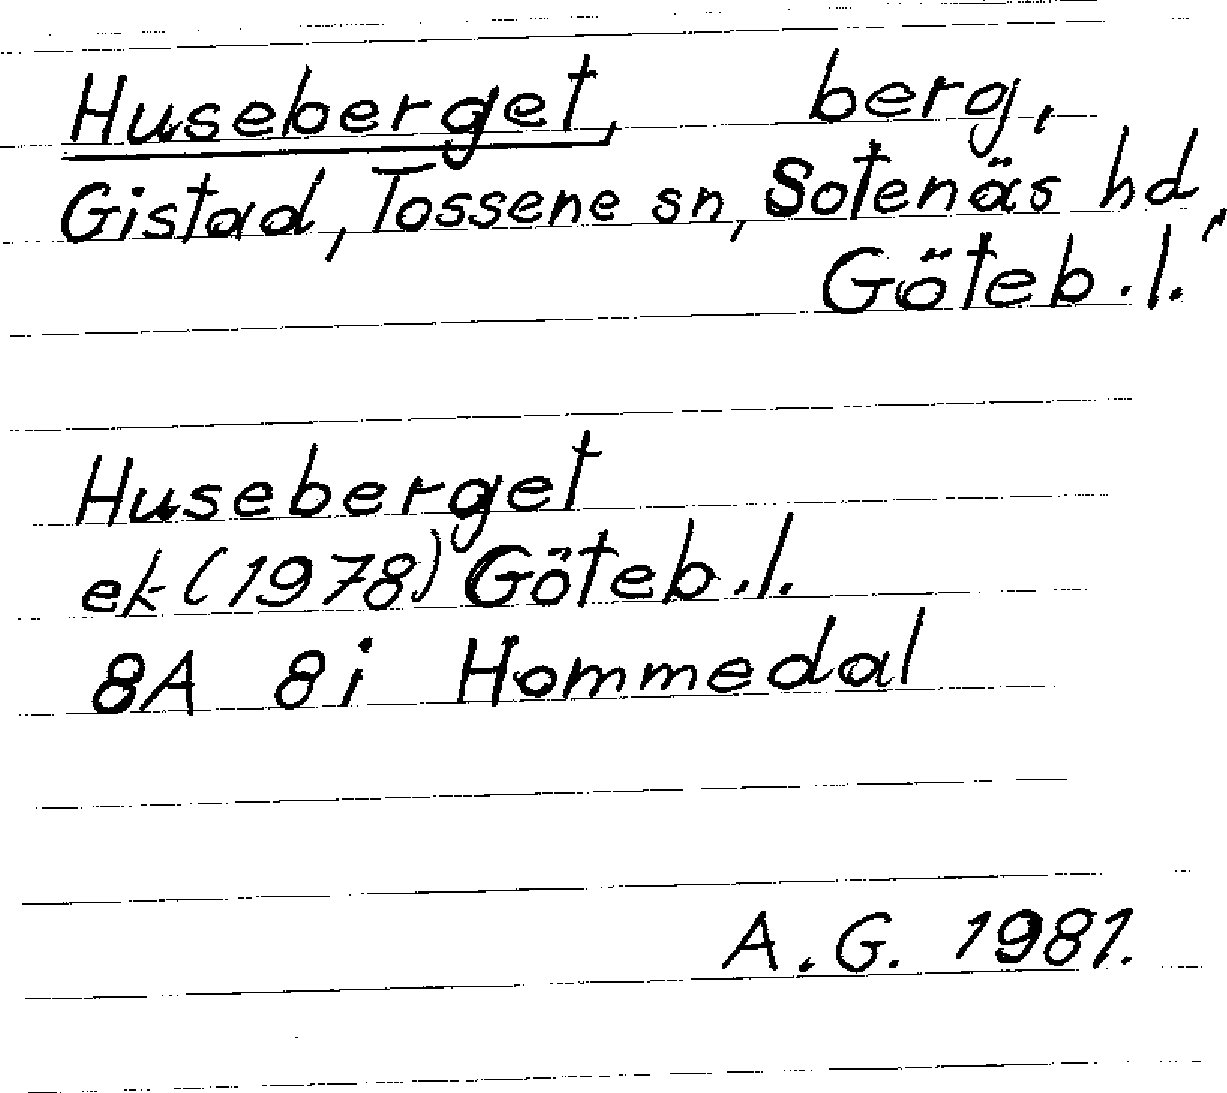 Huseberget, berg,
Gistad, Tossene sn, Sotenäs hd,
Göteb.l.
Huseberget
ek (1978) Göteb.l.
8A 8i Hommedal
A.G. 1981.